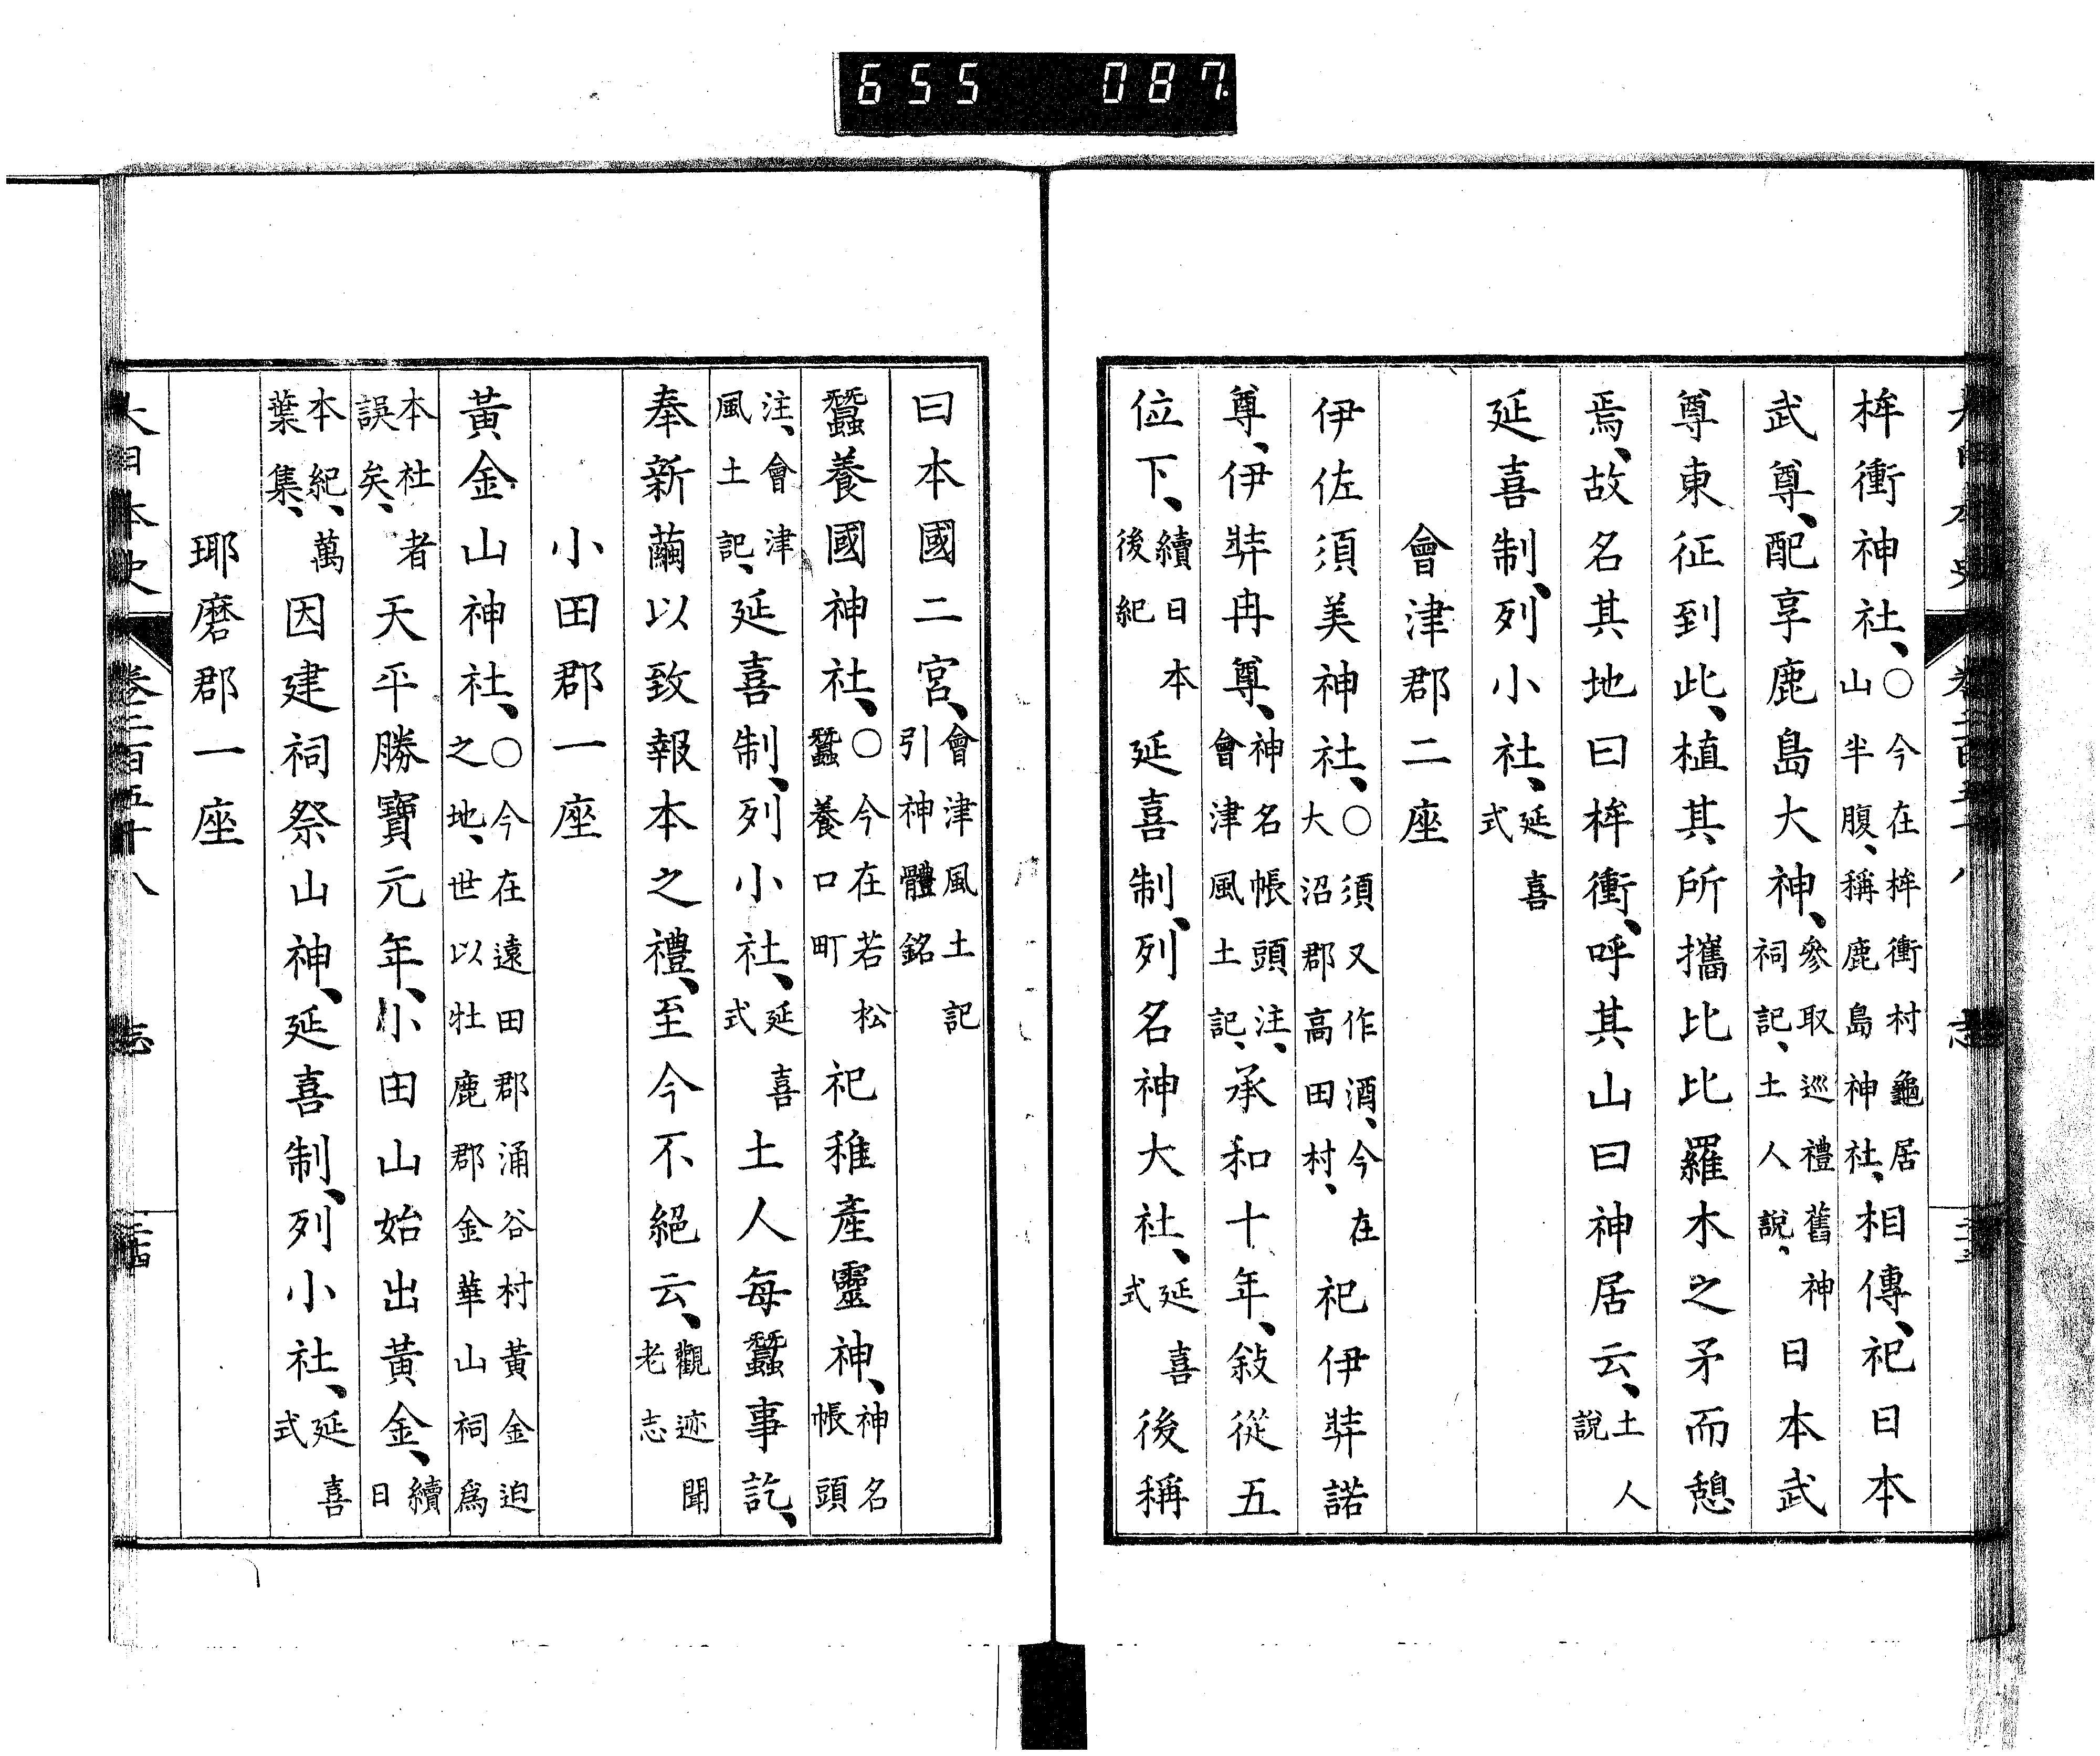 655 087
大日本史 卷二百五十八 志
桙衝神社、〇今在桙衝村龜居山半腹、稱鹿島神社、相傳、祀日本
武尊、配享鹿島大神、參取巡禮舊神祠記、土人說、日本武
尊東征到此、植其所攜比比羅木之矛而憩
焉、故名其地曰桙衝、呼其山曰神居云、土人說
延喜制、列小社、延喜式
會津郡二座
伊佐須美神社、〇須又作酒、今在大沼郡高田村、祀伊弉諾
尊、伊弉冉尊、神名帳頭注、會津風土記、承和十年、敍從五
位下、續日本後紀延喜制、列名神大社、延喜式後稱
曰本國二宮、會津風土記引神體銘
蠶養國神社、〇今在若松蠶養口町祀稚產靈神、神名帳頭
注、會津風土記、延喜制、列小社、延喜式土人每蠶事訖、
奉新繭以致報本之禮、至今不絕云、觀迹聞老志
小田郡一座
黃金山神社、〇今在遠田郡涌谷村黃金迫之地、世以牡鹿郡金華山祠爲
本社者誤矣、天平勝寶元年、小田山始出黃金、續日
本紀、萬葉集、因建祠祭山神、延喜制、列小社、延喜式
耶磨郡一座
大日本史 卷二百五十八 志 二十四